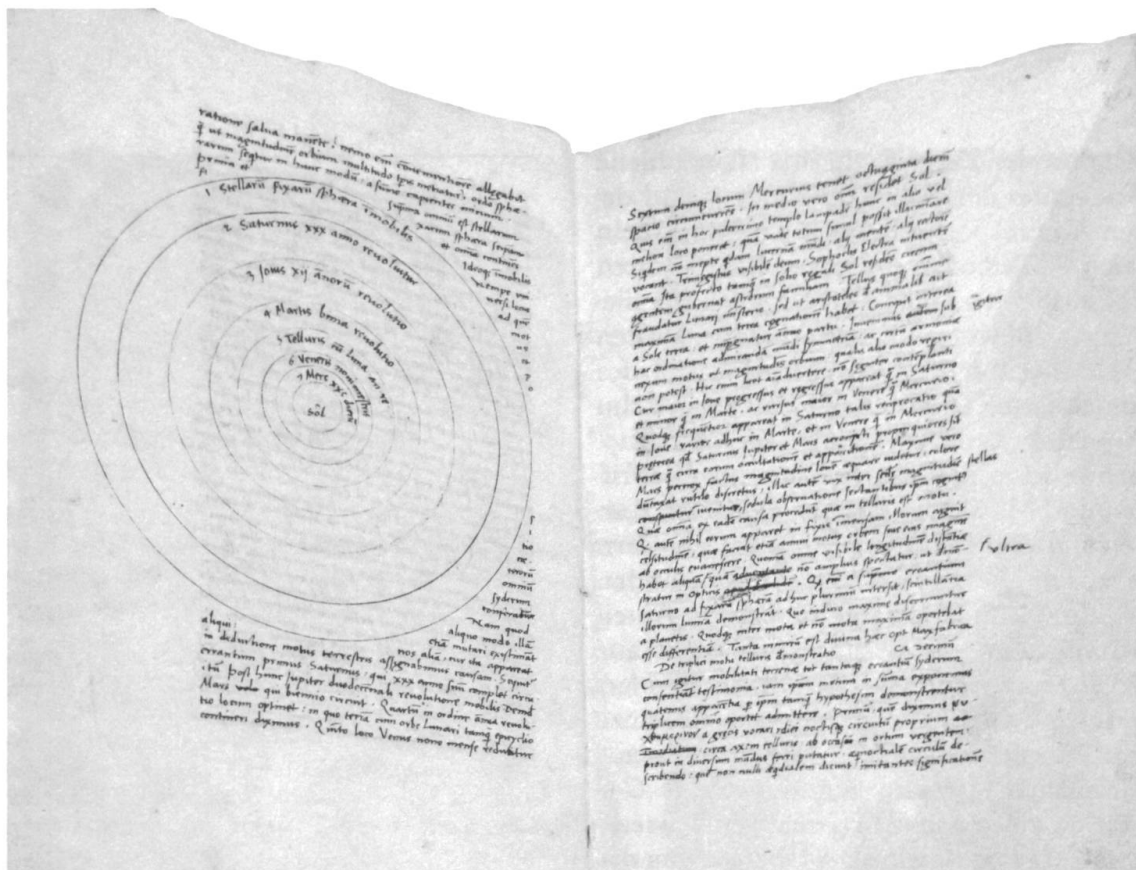 ratione salua manēte: nemo em̄ cōuenientiore allegabit
q̄ ut magnitudinē orbium multitudo tp̄is metiatur: ordo sphæ-
rarum seqtur in hunc modum: a sūmo capientes initium.
Prima et suprema omniū est stellarum
fixarum sphæra seipsam
et omnia continens
Ideoq immobilis
nempe uni
uersi locus
ad quē
mot
1 Stellarū fixarū sphæra immobilis
2 Saturnus xxx anno reuoluitur
3 Iouis xij annorū reuolutio
4 Martis bima reuolutio
5 Telluris cū luna an re
6 Veneris nonimestris
7 Merc xxc dierū
Sol
ceterorū
omniū
syderum
conferatur
Nam quod
aliqui: aliquo modo illā
etiā mutari existimāt
nos aliā: cur ita appareat
in deductione motus terrestris assignabimus causam. Sequit
errantium primus Saturnus: qui xxx anno suū complet circu
itū post hunc Iupiter duodecennali reuolutione mobilis Deīd
Mars qui biennio circuit. Quartū in ordine annua reuolu
tio locum optinet: in quo terrā cum orbe lunari tamq̄ epicyclio
contineri diximus. Quīto loco Venus nono mense reducitur
Sextum deniq locum Mercurius tenet octuaginta dierū
spacio circūcurrens. In medio vero omniū residet Sol.
Quis em̄ in hoc pulcerrimo templo lampadē hanc in alio vel
meliori loco poneret: quā unde totum simul possit illuminare
Siqdem nō inepte quidam lucernā mūdi: alij mentē: alij rectorē
vocant. Trimegistus visibilē deum. Sophoclis Electra intuentē
omīa. Ita profecto tamq̄ in solio regali Sol residēs circum
agentem gubernat astrorum familiam. Tellus quoq̄ minime
fraudatur lunari ministerio: sed ut aristoteles de animalibꝰ ait
maximā Luna cum terra cognationem habet. Concipit interea
a Sole terra: et impregnatur annuo partu. Inuenimus igitur sub
hac ordinatione admirandā mūdi symmetriam: ac certū armoniæ
nexum motus et magnitudinis orbium: qualis alio modo reperiri
non potest. Hic enim licet animaduertere nō segniter contēplanti
Cur maior in Ioue progressus et regressus appareat q̄ in Saturno
et minor q̄ in Marte: ac rursus maior in Venere q̄ Mercurio.
Quodq̄ frequentior appareat in Saturno talis reciprocatio quā
in Ioue: rarior adhuc in Marte, et in Venere q̄ in Mercurio
preterea qd Saturnus Iupiter et Mars acronycti propinquiores sīt
terræ q̄ circa eorum occultationem et apparitionē. Maxime vero
Mars pernox factus magnitudine Iouē æquare videtur: colore
dūtaxat rutilo discretus: illic autē vix inter secūdæ magnitudinis stellas
inuenitur, sedula obseruatione sectantibus ipm̄ cognitꝰ
Quæ omīa ex eadē causa procedūt quæ in telluris est motu.
Q autē nihil eorum apparet in fixis immensam illorum arguit
celsitudinē: quæ faciat etiā annui motus orbem siue eius imaginē
ab oculis euanescere. Quoniā omne visibile longitudinē distātiæ
habet aliquā: ultra quā non amplius spectatur: ut demō-
stratur in Opticis. Q em̄ a supremo errantium
Saturno ad fixarū sphærā adhuc plurimū intersit, scintillātia
illorum lumīa demōstrat. Quo indicio maxime discernuntur
a planetis. Quodq̄ inter mota et nō mota maximā oportebat
esse differentiā. Tanta nimirū est diuina hæc Opt Max fabrica
De triplici motu telluris demōstratio Ca decimū
Cum igitur mobilitati terrenæ tot tantaq̄ errantiū syderum
consentiāt testimonia: iam ipsum motum in sūma exponemus
quatenus apparētia p̄ ipm̄ tamq̄ hypothesim demonstrentur
triplicem omnīo oportet admittere. Primū quē diximus
a grecis vocari diei noctisq̄ circuitū proprium
circa axem telluris: ab occasu in ortum vergentem:
prout in diuersum mūdus ferri putatur: æquinoctialē circulū de-
scribendo: quē non nulli æqdialem dicunt: imitantes significationē